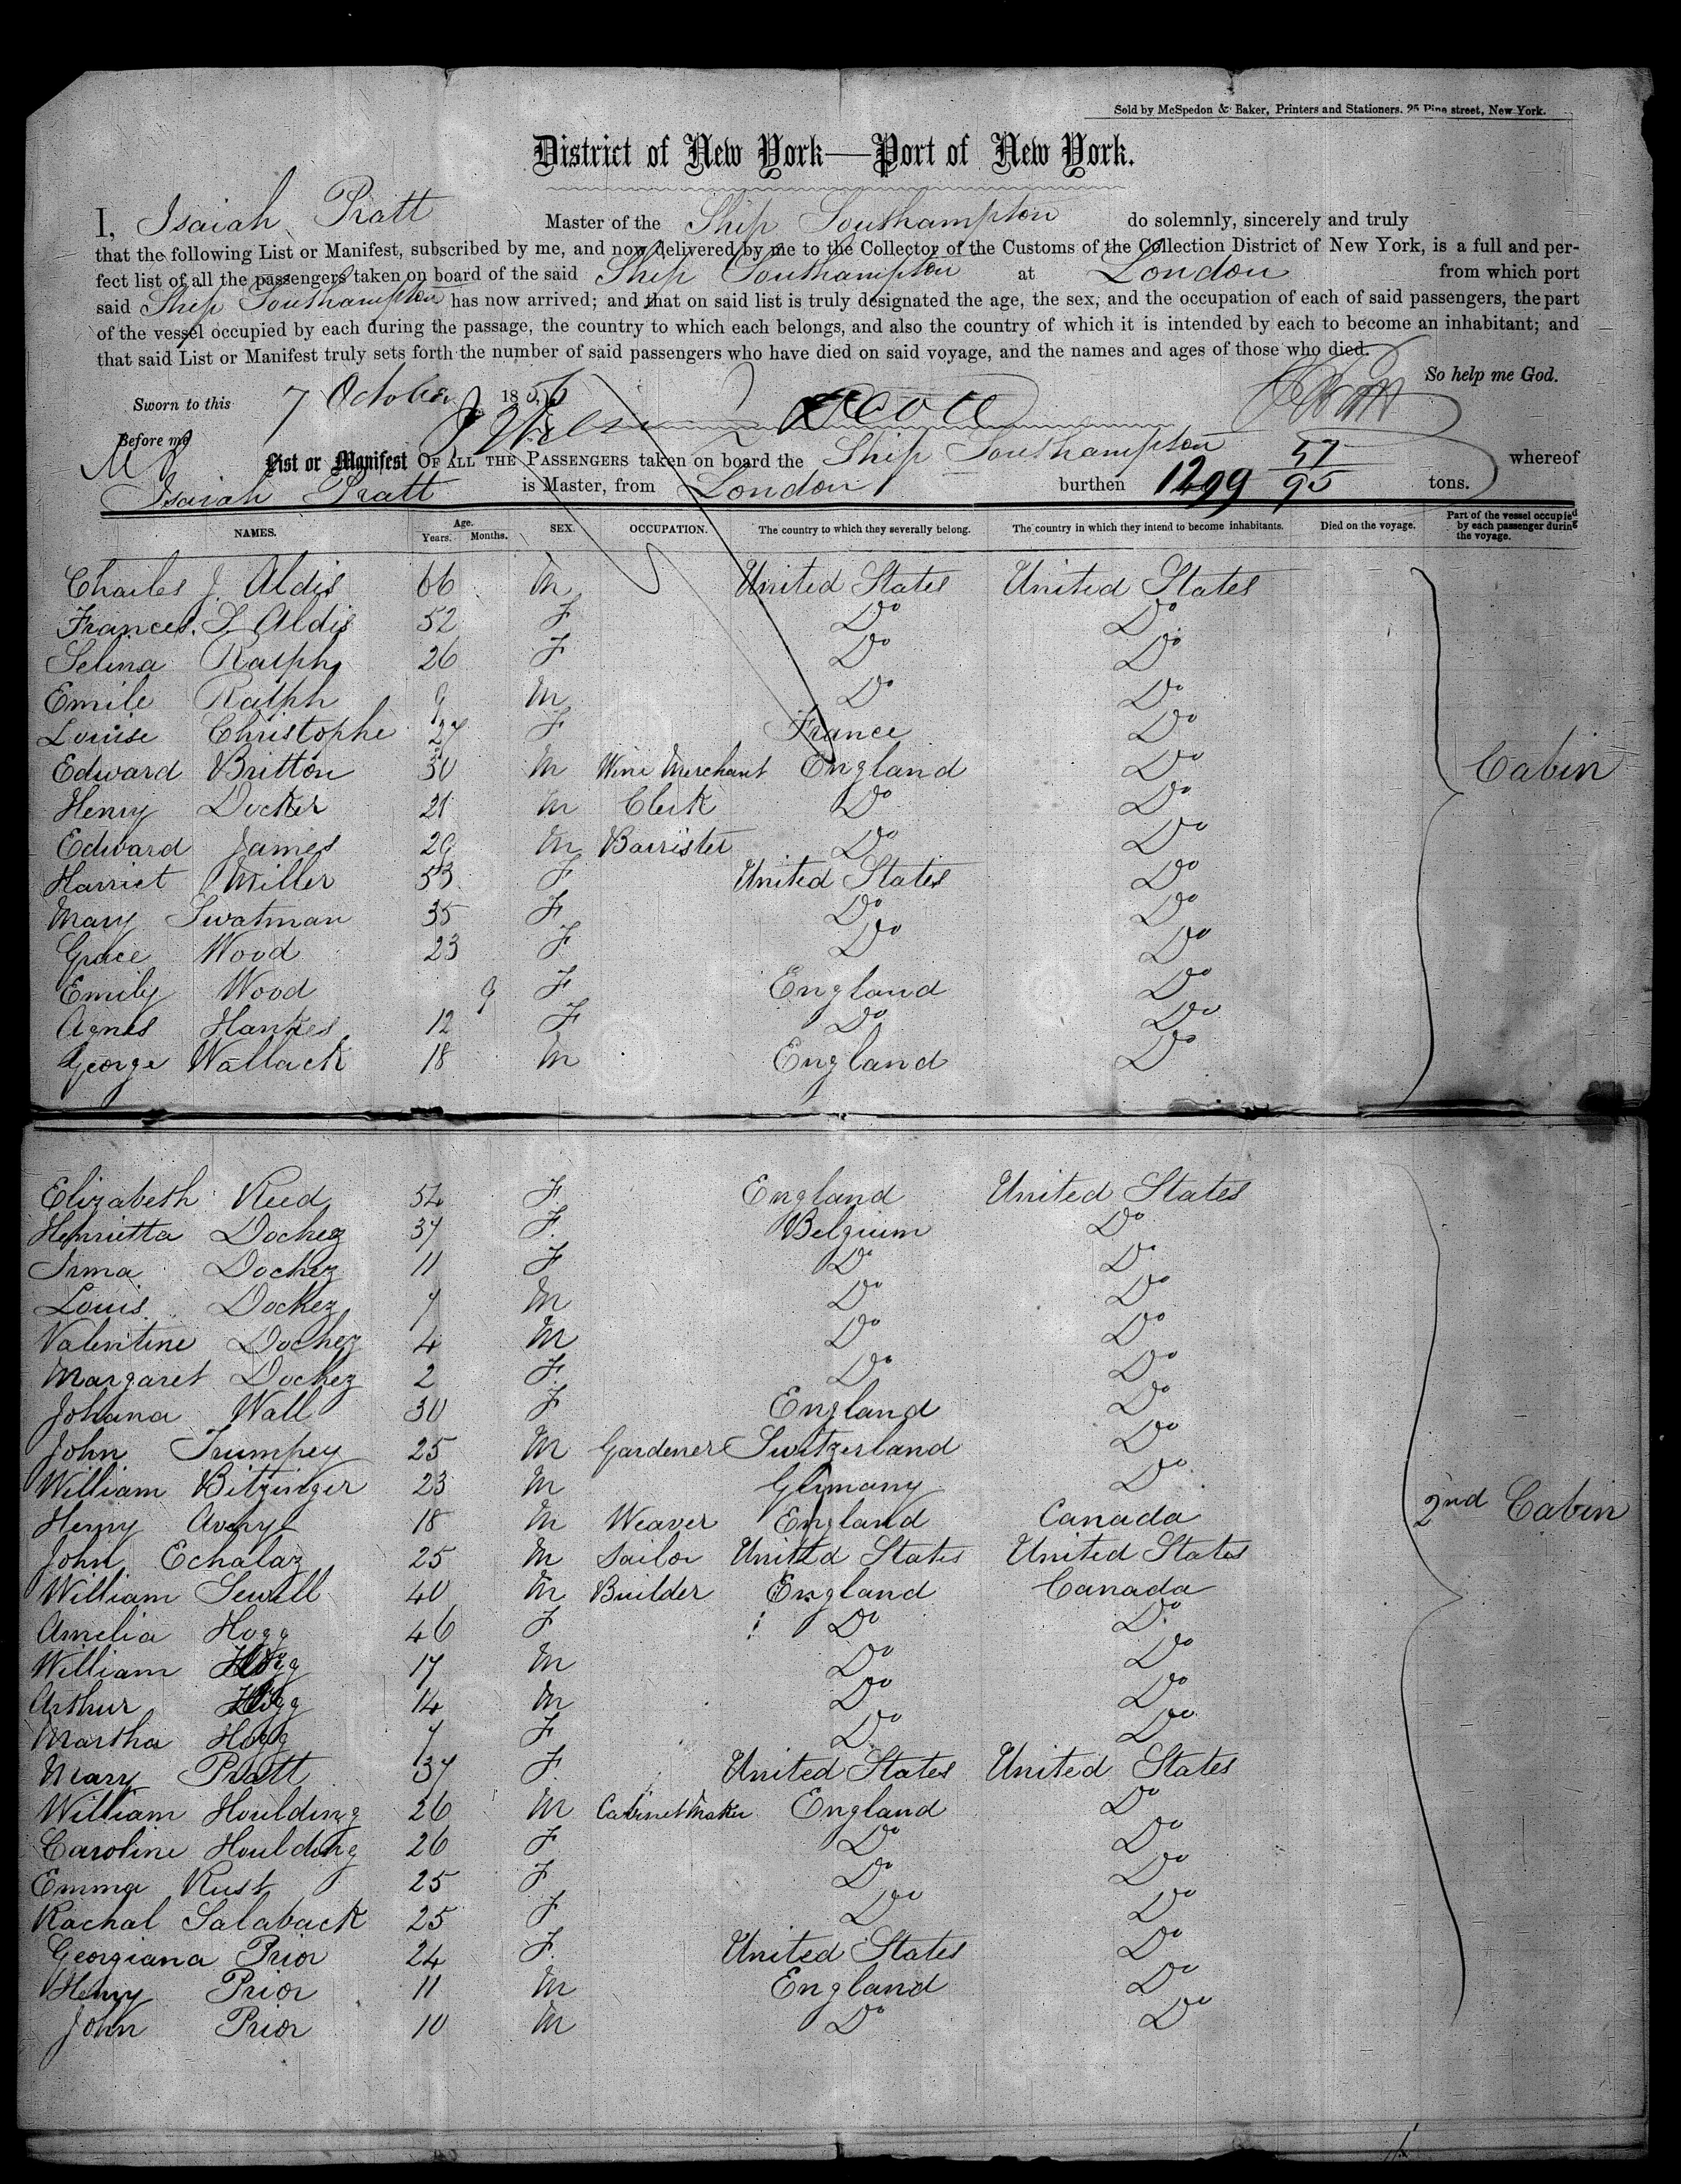 Sold by McSpedon & Baker, Printers and Stationers. 25 Pine street, New York.
District of New York—Port of New York.
I, Isaiah Pratt Master of the Ship Southampton do solemnly, sincerely and truly
that the following List or Manifest, subscribed by me, and now delivered by me to the Collector of the Customs of the Collection District of New York, is a full and per-
fect list of all the passengers taken on board of the said Ship Southampton at London from which port
said Ship Southampton has now arrived; and that on said list is truly designated the age, the sex, and the occupation of each of said passengers, the part
of the vessel occupied by each during the passage, the country to which each belongs, and also the country of which it is intended by each to become an inhabitant; and
that said List or Manifest truly sets forth the number of said passengers who have died on said voyage, and the names and ages of those who died.
So help me God.
Sworn to this 7 October 1856
Before me
List or Manifest OF ALL THE PASSENGERS taken on board the Ship Southampton whereof
Isaiah Pratt is Master, from London burthen 1299 57/95 tons.
NAMES. Age. Years. Months. SEX. OCCUPATION. The country to which they severally belong. The country in which they intend to become inhabitants. Died on the voyage. Part of the vessel occupied by each passenger during the voyage.
Charles J. Aldis 66 M United States United States
Frances. S Aldis 52 F Do Do
Selina Ralph 26 F Do Do
Emile Ralph 9 M Do Do
Louise Christophe 27 F France Do
Edward Britton 30 M Wine Merchant England Do Cabin
Henry Docker 21 M Clerk Do Do
Edward James 29 M Barrister Do Do
Harriet Miller 53 F United States Do
Mary Swatman 35 F Do Do
Grace Wood 23 F Do Do
Emily Wood 9 F England Do
Agnes Hankes 12 F Do Do
George Wallack 18 M England Do
Elizabeth Reed 54 F England United States
Henrietta Dochez 37 F. Belgium Do
Irma Dochez 11 F Do Do
Louis Dochez 7 M Do Do
Valentine Dochez 4 M Do Do
Margaret Dochez 2 F. Do Do
Johana Wall 30 F England Do
John Trumpey 25 M Gardener Switzerland Do
William Bitzinger 23 M Germany Do
Henry Avery 18 M Weaver England Canada 2nd Cabin
John Echalaz 25 M Sailor United States United States
William Sewell 40 M Builder England Canada
Amelia Hogg 46 F Do Do
William Hogg 17 M Do Do
Arthur Hogg 14 M Do Do
Martha Hogg 7 F Do Do
Mary Pratt 37 F. United States United States
William Houlding 26 M Cabinet Maker England Do
Caroline Houlding 26 F Do Do
Emma Rust 25 F Do Do
Rachal Salaback 25 F Do Do
Georgiana Prior 24 F. United States Do
Henry Prior 11 M England Do
John Prior 10 M Do Do